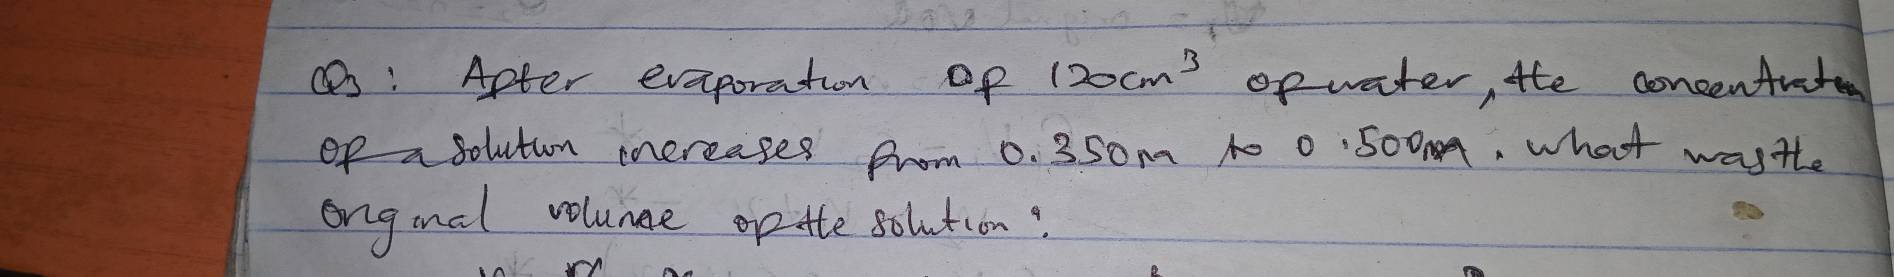 Q3: After evaporation of 120cm³ of water, the concentration
of a solution increases from 0.350m to 0.500m. what was the
original volume of the solution?